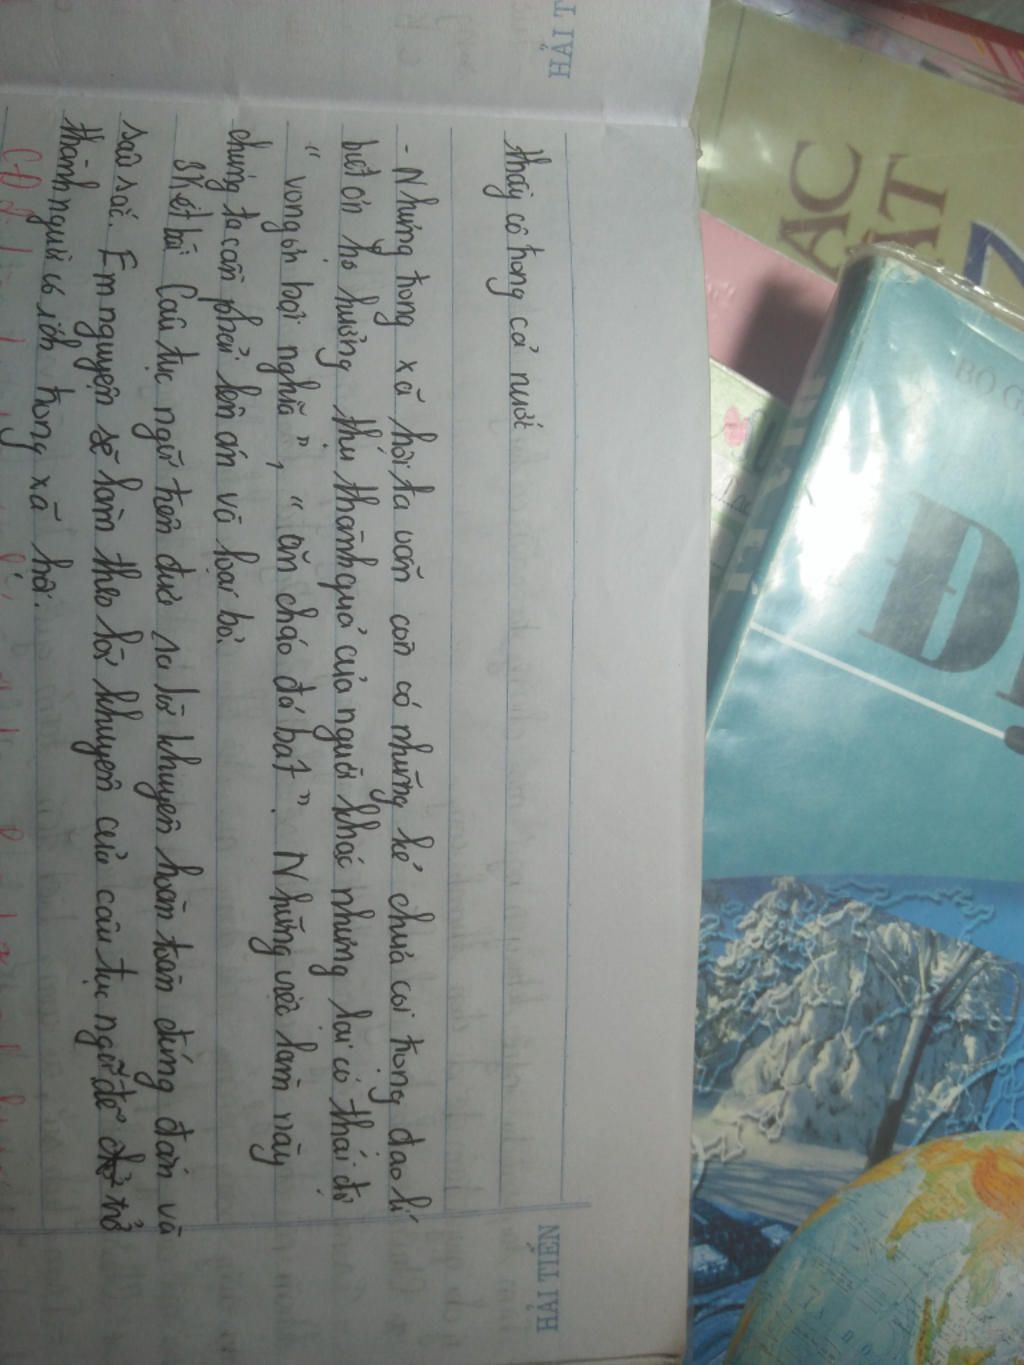 HẢI T
HẢI TIẾN
thầy cô trong cả nước
- Nhưng trong xã hội ta vẫn còn có những kẻ chưa coi trọng đạo lí
biết ơn họ hưởng thụ thành quả của người khác nhưng lại có thái độ
" vong ơn bội nghĩa ", " ăn cháo đá bát ". Những việc làm này
chúng ta cần phải lên án và loại bỏ.
3 Kết bài Câu tục ngữ trên đưa ra lời khuyên hoàn toàn đúng đắn và
sâu sắc. Em nguyện sẽ làm theo lời khuyên của câu tục ngữ để trở
thành người có ích trong xã hội.
ÁC
ẬT
7
BỘ G
Đ